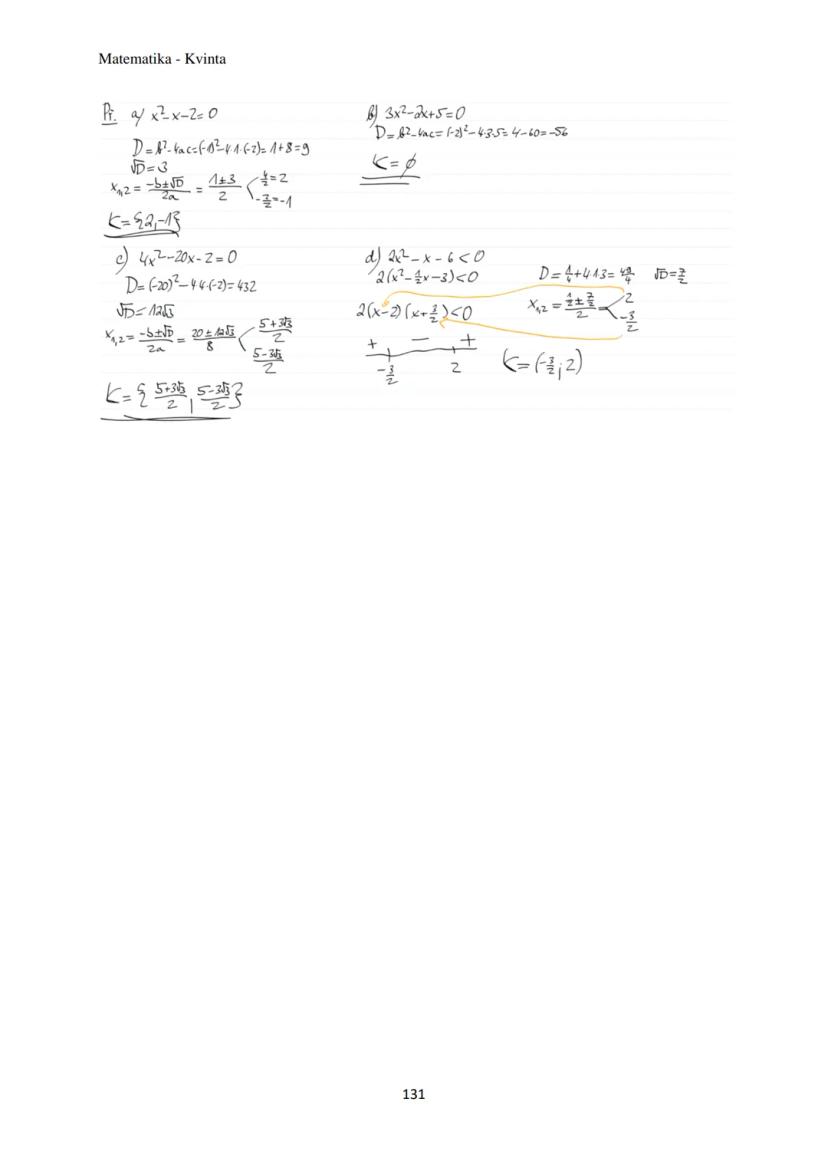 Matematika - Kvinta
Př. a) x²-x-2=0
D=b²-4ac=(-1)²-4·1·(-2)=1+8=9
√D=3
x₁,₂ = (-b±√D)/2a = (1±3)/2 < 4/2=2
-2/2=-1
K={2,-1}
b) 3x²-2x+5=0
D=b²-4ac=(-2)²-4·3·5=4-60=-56
K=∅
c) 4x²-20x-2=0
D=(-20)²-4·4·(-2)=432
√D=12√3
x₁,₂ = (-b±√D)/2a = (20±12√3)/8 < (5+3√3)/2
(5-3√3)/2
K={(5+3√3)/2, (5-3√3)/2}
d) 2x²-x-6<0
2(x²-1/2x-3)<0
2(x-2)(x+3/2)<0
+ - +
-3/2 2
D=1/4+4·1·3=49/4 √D=7/2
x₁,₂ = (1/2±7/2)/2 < 2
-3/2
K=(-3/2; 2)
131